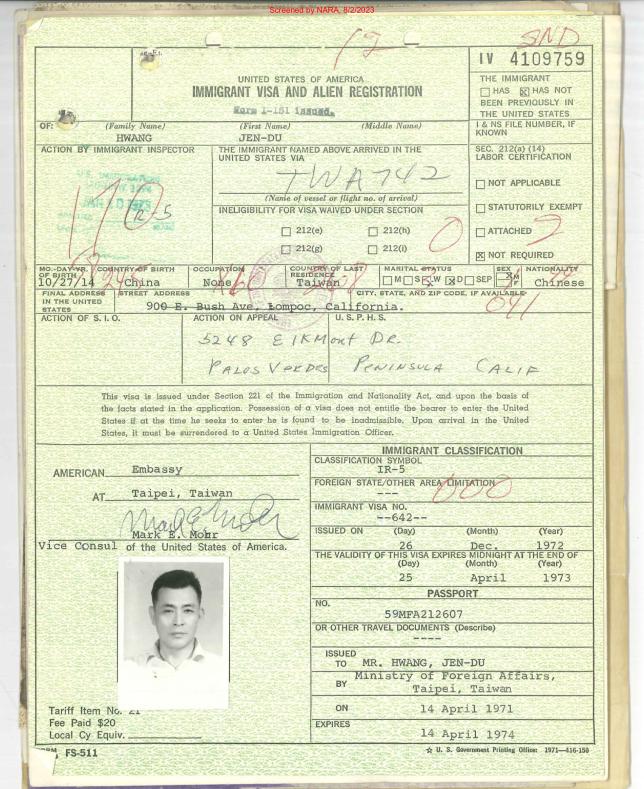 Screened by NARA, 8/2/2023
12
SND
IV 4109759
UNITED STATES OF AMERICA
IMMIGRANT VISA AND ALIEN REGISTRATION
Form I-151 issued.
THE IMMIGRANT
☐ HAS ☒ HAS NOT
BEEN PREVIOUSLY IN
THE UNITED STATES
I & NS FILE NUMBER, IF
KNOWN
OF: (Family Name) (First Name) (Middle Name)
HWANG JEN-DU
ACTION BY IMMIGRANT INSPECTOR
THE IMMIGRANT NAMED ABOVE ARRIVED IN THE
UNITED STATES VIA
TWA 742
(Name of vessel or flight no. of arrival)
INELIGIBILITY FOR VISA WAIVED UNDER SECTION
☐ 212(e) ☐ 212(h)
☐ 212(g) ☐ 212(i)
SEC. 212(a) (14)
LABOR CERTIFICATION
☐ NOT APPLICABLE
☐ STATUTORILY EXEMPT
☐ ATTACHED
☒ NOT REQUIRED
MO.-DAY-YR. OF BIRTH COUNTRY OF BIRTH OCCUPATION COUNTRY OF LAST RESIDENCE MARITAL STATUS SEX NATIONALITY
10/27/14 China None Taiwan ☐ M ☐ S ☐ W ☒ D ☐ SEP M Chinese
245
041
FINAL ADDRESS IN THE UNITED STATES STREET ADDRESS CITY, STATE, AND ZIP CODE, IF AVAILABLE
900 E. Bush Ave, Lompoc, California.
ACTION OF S.I.O. ACTION ON APPEAL U.S.P.H.S.
5248 ElKMont DR.
PALOS VERDES PENINSULA CALIF
This visa is issued under Section 221 of the Immigration and Nationality Act, and upon the basis of
the facts stated in the application. Possession of a visa does not entitle the bearer to enter the United
States if at the time he seeks to enter he is found to be inadmissible. Upon arrival in the United
States, it must be surrendered to a United States Immigration Officer.
AMERICAN Embassy
AT Taipei, Taiwan
Mark E. Mohr
Mark E. Mohr
Vice Consul of the United States of America.
IMMIGRANT CLASSIFICATION
CLASSIFICATION SYMBOL
IR-5
FOREIGN STATE/OTHER AREA LIMITATION
---
000
IMMIGRANT VISA NO.
--642--
ISSUED ON (Day) (Month) (Year)
26 Dec. 1972
THE VALIDITY OF THIS VISA EXPIRES MIDNIGHT AT THE END OF
(Day) (Month) (Year)
25 April 1973
PASSPORT
NO.
59MFA212607
OR OTHER TRAVEL DOCUMENTS (Describe)
----
ISSUED
TO MR. HWANG, JEN-DU
BY Ministry of Foreign Affairs,
Taipei, Taiwan
ON 14 April 1971
EXPIRES
14 April 1974
Tariff Item No. 21
Fee Paid $20
Local Cy Equiv.
FS-511
☆ U. S. Government Printing Office: 1971—416-150